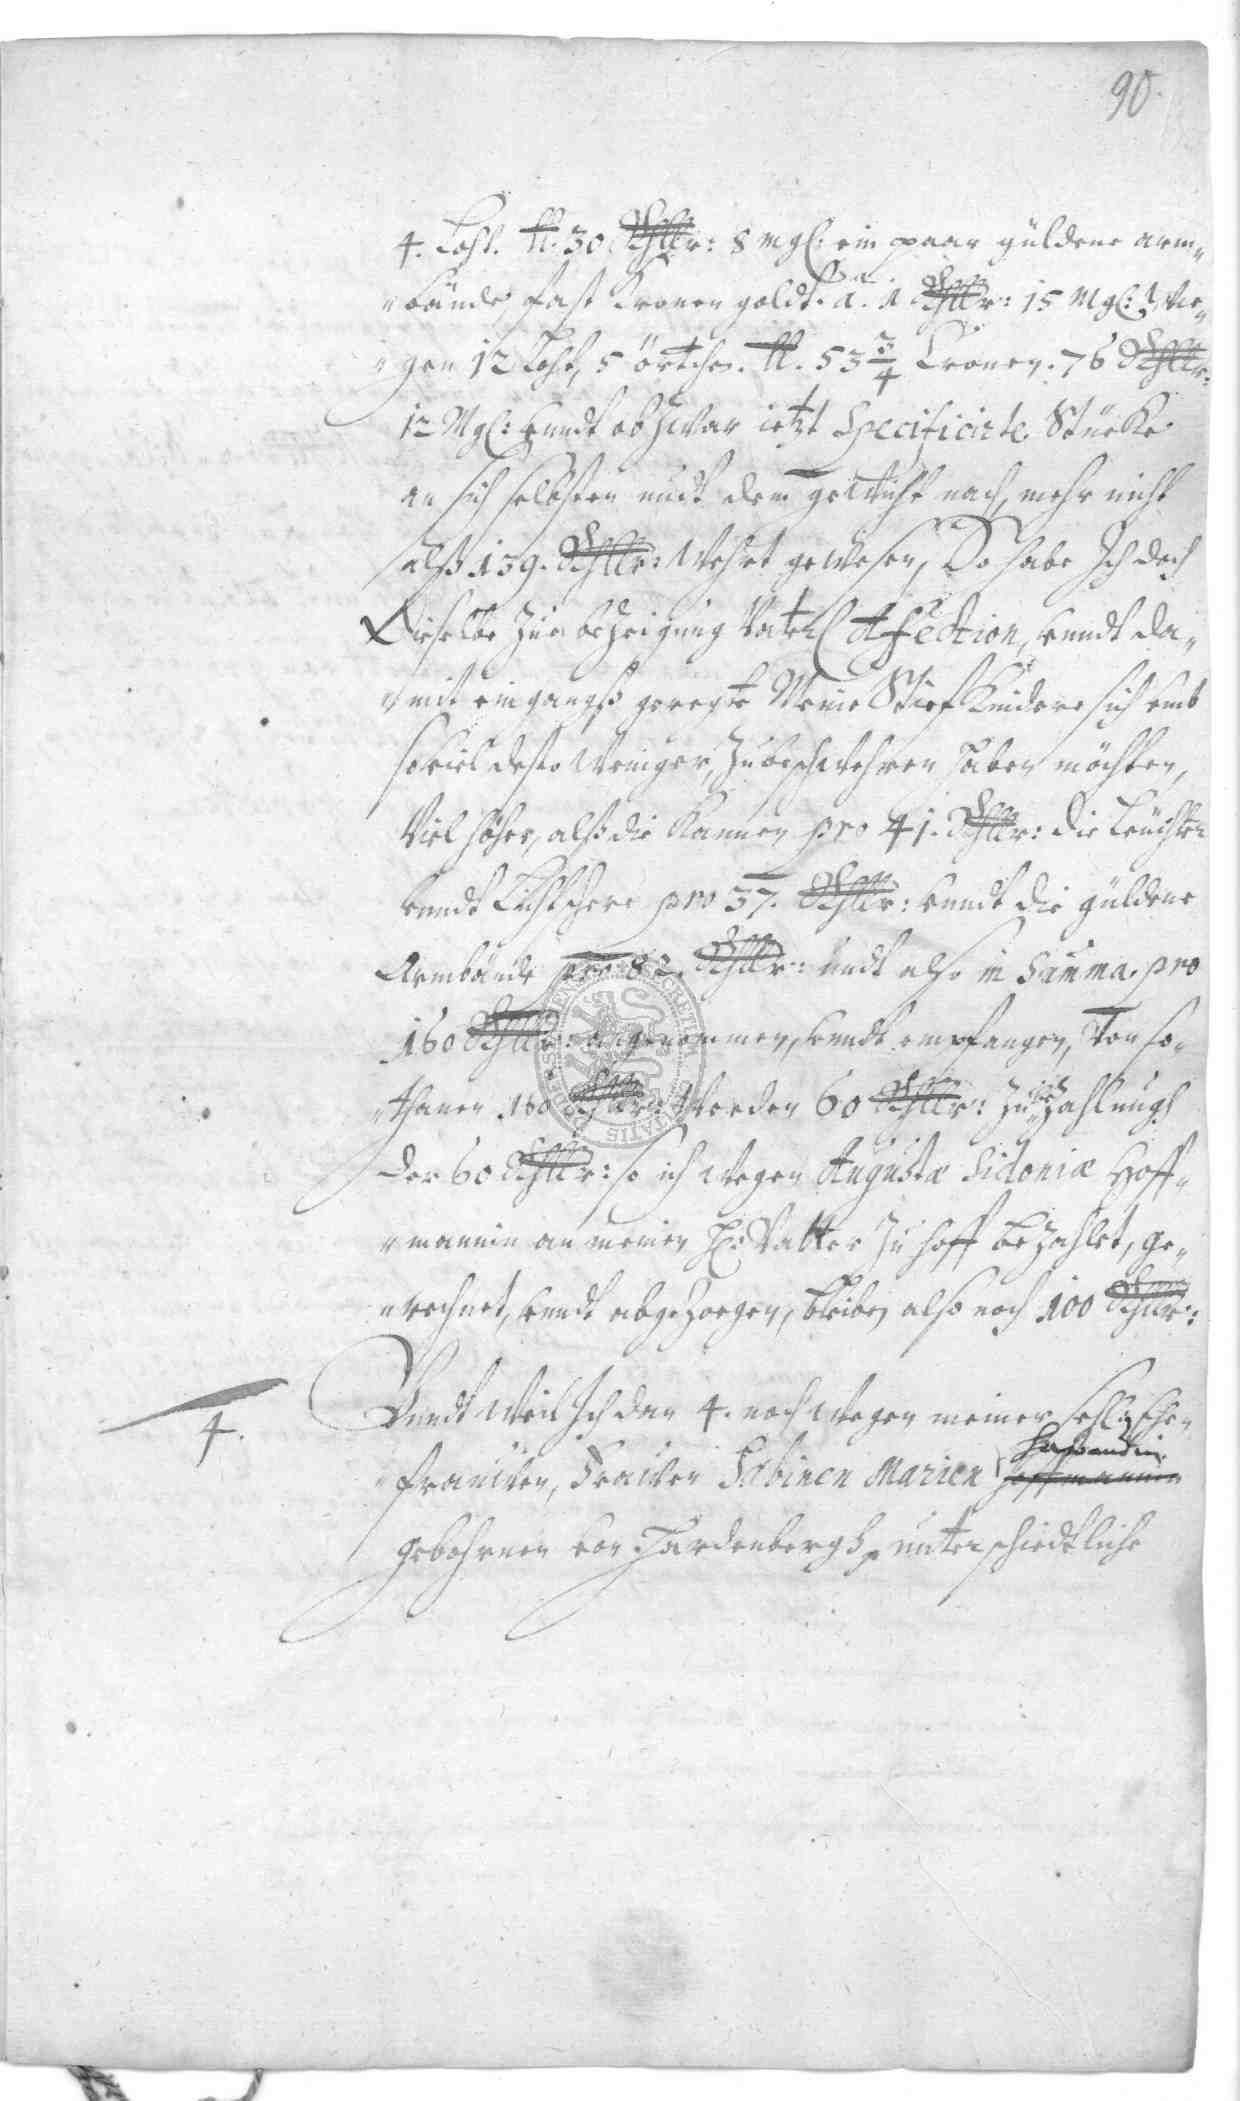 90.
4. Loht. tt. 30 Rthlr: 8 mgl: ein paar güldene arm„
„bände fast Cronen goldt. à. 1 Rthlr: 15 Mgl: Wie„
„gen 12 Loht, 5 örtchen. tt. 53 3/4 Cronen. 76 Rthlr:
12 Mgl: vnndt ob zwar ietzt Specificirte Stücke
an sich selbsten undt dem gewicht nach, mehr nicht
alß 139. Rthlr: Wehrt gewesen, So habe Ich doch
Dieselbe zue bezeigung Väterl Affection, vnndt da„
„mit eingangß geregte Meine Stief Kindere sich umb
soviel desto weniger, zubeschwehren haben möchten,
Viel höher, alß die Kannen pro 41. Rthlr: die Leüchter
vnndt Lichtschere pro 37. Rthlr: vnndt die güldene
Armbände pro 82. Rthlr: undt also in Summa pro
160 Rthlr: angenommen, vnndt empfangen, Von so„
„thanen 160 Rthlr: Werden 60 Rthlr: zu bezahlungh
der 60 Rthlr: so ich wegen Augustæ Sidoniæ Hoff„
„mannin an meinen H: Vatter zu hoff bezahlet, ge„
„rechnet, vnndt abgezoegen, bleiben also noch 100 Rthlr:
4.
Vnndt weil Ich dan 4. noch wegen meiner sehligschen
frauwen, Frawen Sabinen Marien hoffmannin
gebohrnen von Hardenbergh, unterschiedtliche